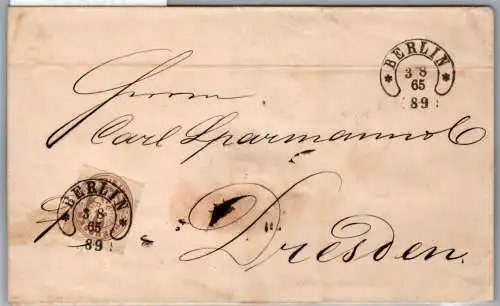 BERLIN
3 8
65
89
Herrn
Carl Sparmann & C
BERLIN
3 8
65
89
Dresden.